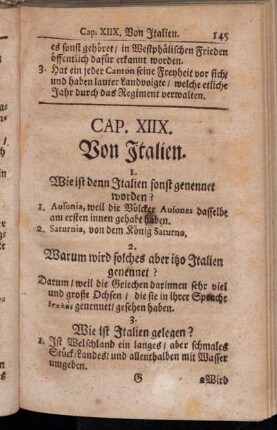 Cap. XIIX. Von Italien. 145
es sonst gehöret / in Westphälischen Frieden
öffentlich dafür erkannt worden.
3. Hat ein jeder Canton seine Freyheit vor sich/
und haben lauter Landvoigte / welche etliche
Jahr durch das Regiment verwalten.
CAP. XIIX.
Von Italien.
1.
Wie ist denn Italien sonst genennet
worden?
1. Ausonia, weil die Völcker Ausones dasselbe
am ersten innen gehabt haben.
2. Saturnia, von dem König Saturno.
2.
Warum wird solches aber itzo Italien
genennet?
Darum / weil die Griechen darinnen sehr viel
und große Ochsen / die sie in ihrer Sprache
genennet / gesehen haben.
3.
Wie ist Italien gelegen?
1. Ist Welschland ein langes / aber schmales
Stück Landes / und allenthalben mit Wasser
umgeben.
G 2 Wird